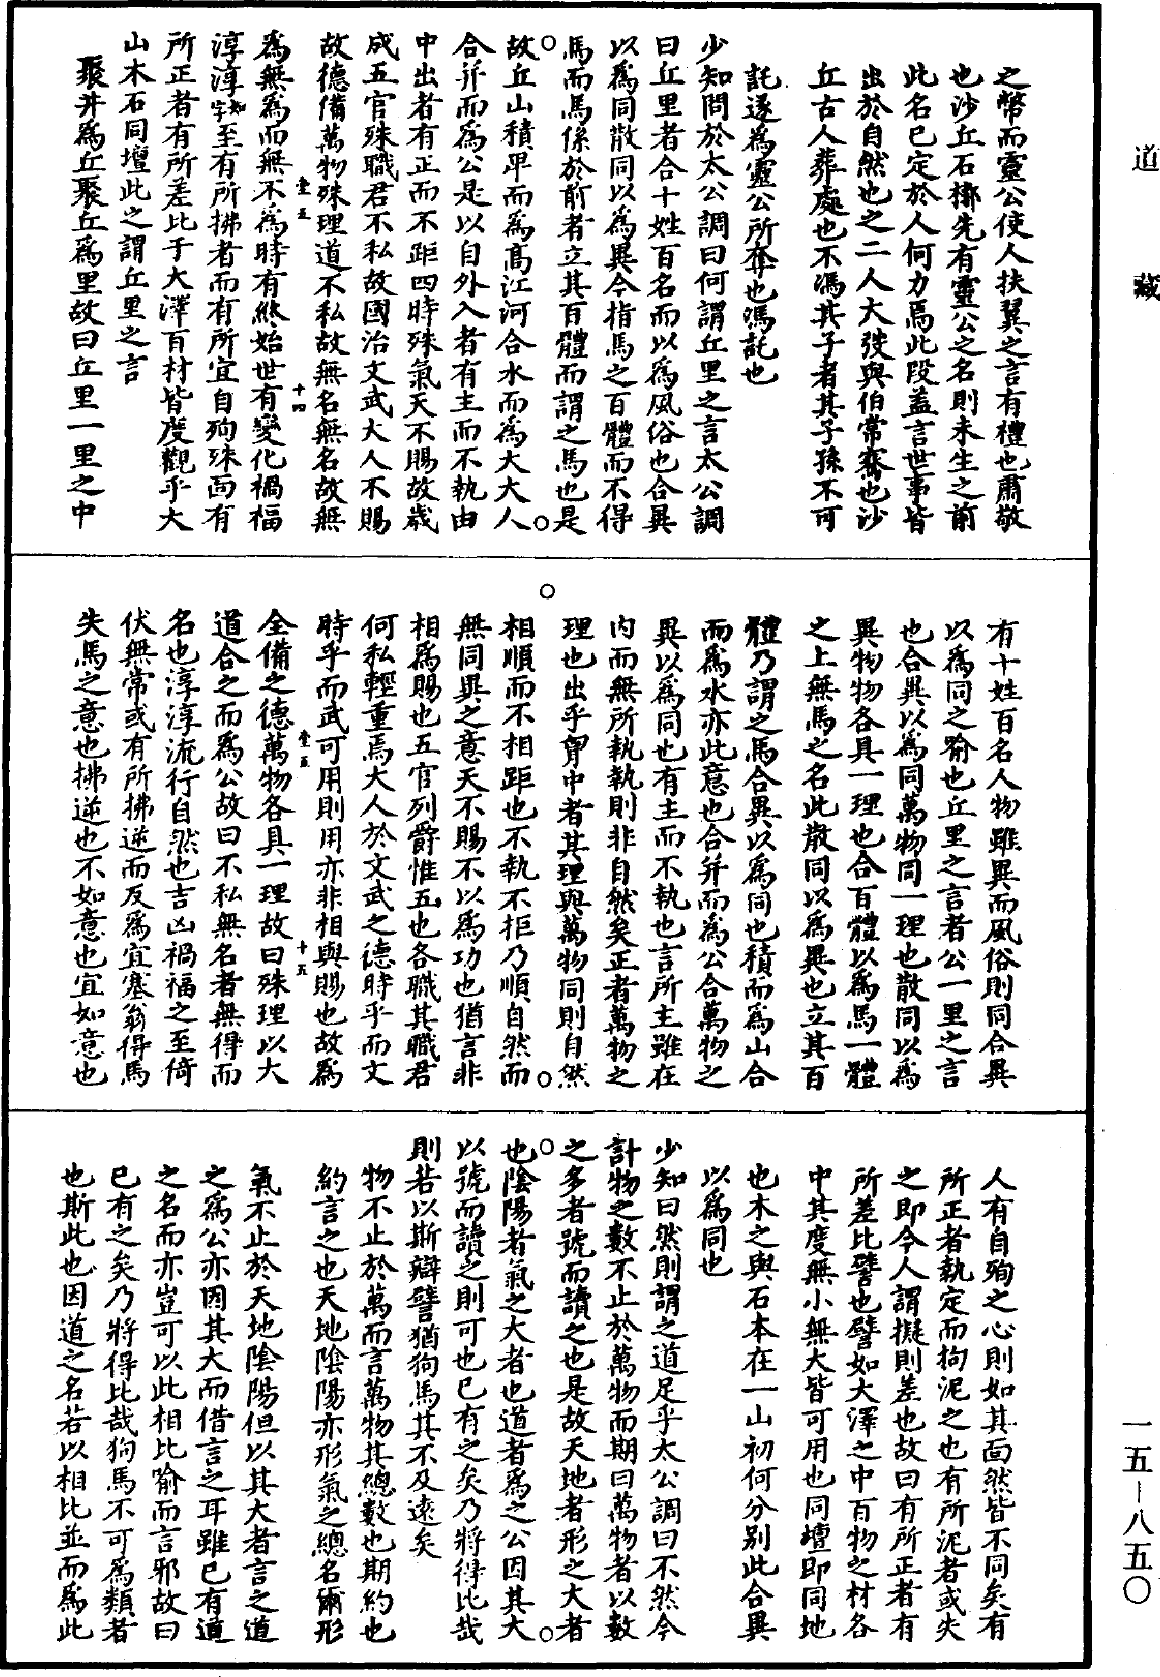 道藏
之幣而靈公使人扶翼之言有禮也肅敬
也沙丘石槨先有靈公之名則未生之前
此名已定於人何力焉此段蓋言世事皆
出於自然也之二人大弢與伯常騫也沙
丘古人葬處也不馮其子者其子孫不可
託遂為靈公所奪也馮託也
少知問於太公調曰何謂丘里之言太公調
曰丘里者合十姓百名而以為風俗也合異
以為同散同以為異今指馬之百體而不得
馬而馬係於前者立其百體而謂之馬也是
故丘山積卑而為高江河合水而為大大人
合并而為公是以自外入者有主而不執由
中出者有正而不距四時殊氣天不賜故歲
成五官殊職君不私故國治文武大人不賜
故德備萬物殊理道不私故無名無名故無
壹五
十四
為無為而無不為時有終始世有變化禍福
淳淳如字至有所拂者而有所宜自殉殊面有
所正者有所差比于大澤百材皆度觀乎大
山木石同壇此之謂丘里之言
聚井為丘聚丘為里故曰丘里一里之中
有十姓百名人物雖異而風俗則同合異
以為同之喻也丘里之言者公一里之言
也合異以為同萬物同一理也散同以為
異物物各具一理也合百體以為馬一體
之上無馬之名此散同以為異也立其百
體乃謂之馬合異以為同也積而為山合
而為水亦此意也合并而為公合萬物之
異以為同也有主而不執也言所主雖在
內而無所執執則非自然矣正者萬物之
理也出乎胷中者其理與萬物同則自然
相順而不相距也不執不拒乃順自然而
無同異之意天不賜不以為功也猶言非
相為賜也五官列爵惟五也各職其職君
何私輕重焉大人於文武之德時乎而文
時乎而武可用則用亦非相與賜也故為
壹五
十五
全備之德萬物各具一理故曰殊理以大
道合之而為公故曰不私無名者無得而
名也淳淳流行自然也吉凶禍福之至倚
伏無常或有所拂逆而反為宜塞翁得馬
失馬之意也拂逆也不如意也宜如意也
人有自殉之心則如其面然皆不同矣有
所正者執定而拘泥之也有所泥者或失
之即今人謂擬則差也故曰有所正者有
所差比譬也譬如大澤之中百物之材各
中其度無小無大皆可用也同壇即同地
也木之與石本在一山初何分別此合異
以為同也
少知曰然則謂之道足乎太公調曰不然今
計物之數不止於萬物而期曰萬物者以數
之多者號而讀之也是故天地者形之大者
也陰陽者氣之大者也道者為之公因其大
以號而讀之則可也已有之矣乃將得比哉
則若以斯辯譬猶狗馬其不及遠矣
物不止於萬而言萬物其總數也期約也
約言之也天地陰陽亦形氣之總名爾形
氣不止於天地陰陽但以其大者言之道
之為公亦因其大而借言之耳雖已有道
之名而亦豈可以此相比喻而言邪故曰
已有之矣乃將得比哉狗馬不可為類者
也斯此也因道之名若以相比並而為此
一五－八五〇